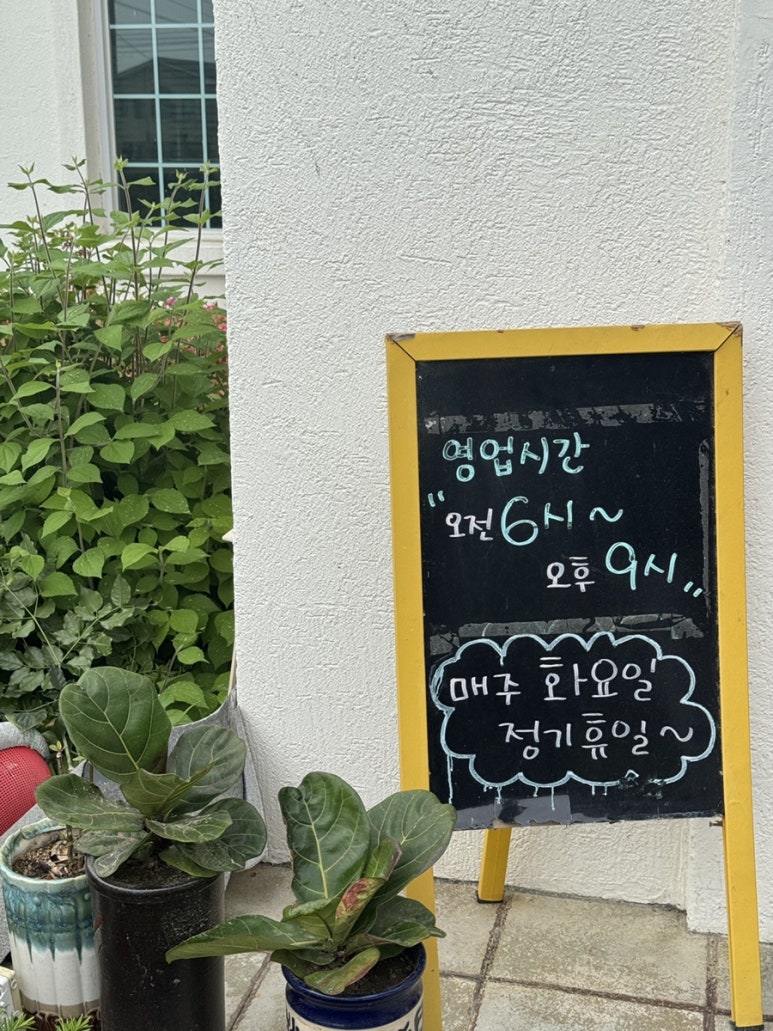 영업시간
"오전 6시~
오후 9시"
매주 화요일
정기휴일~